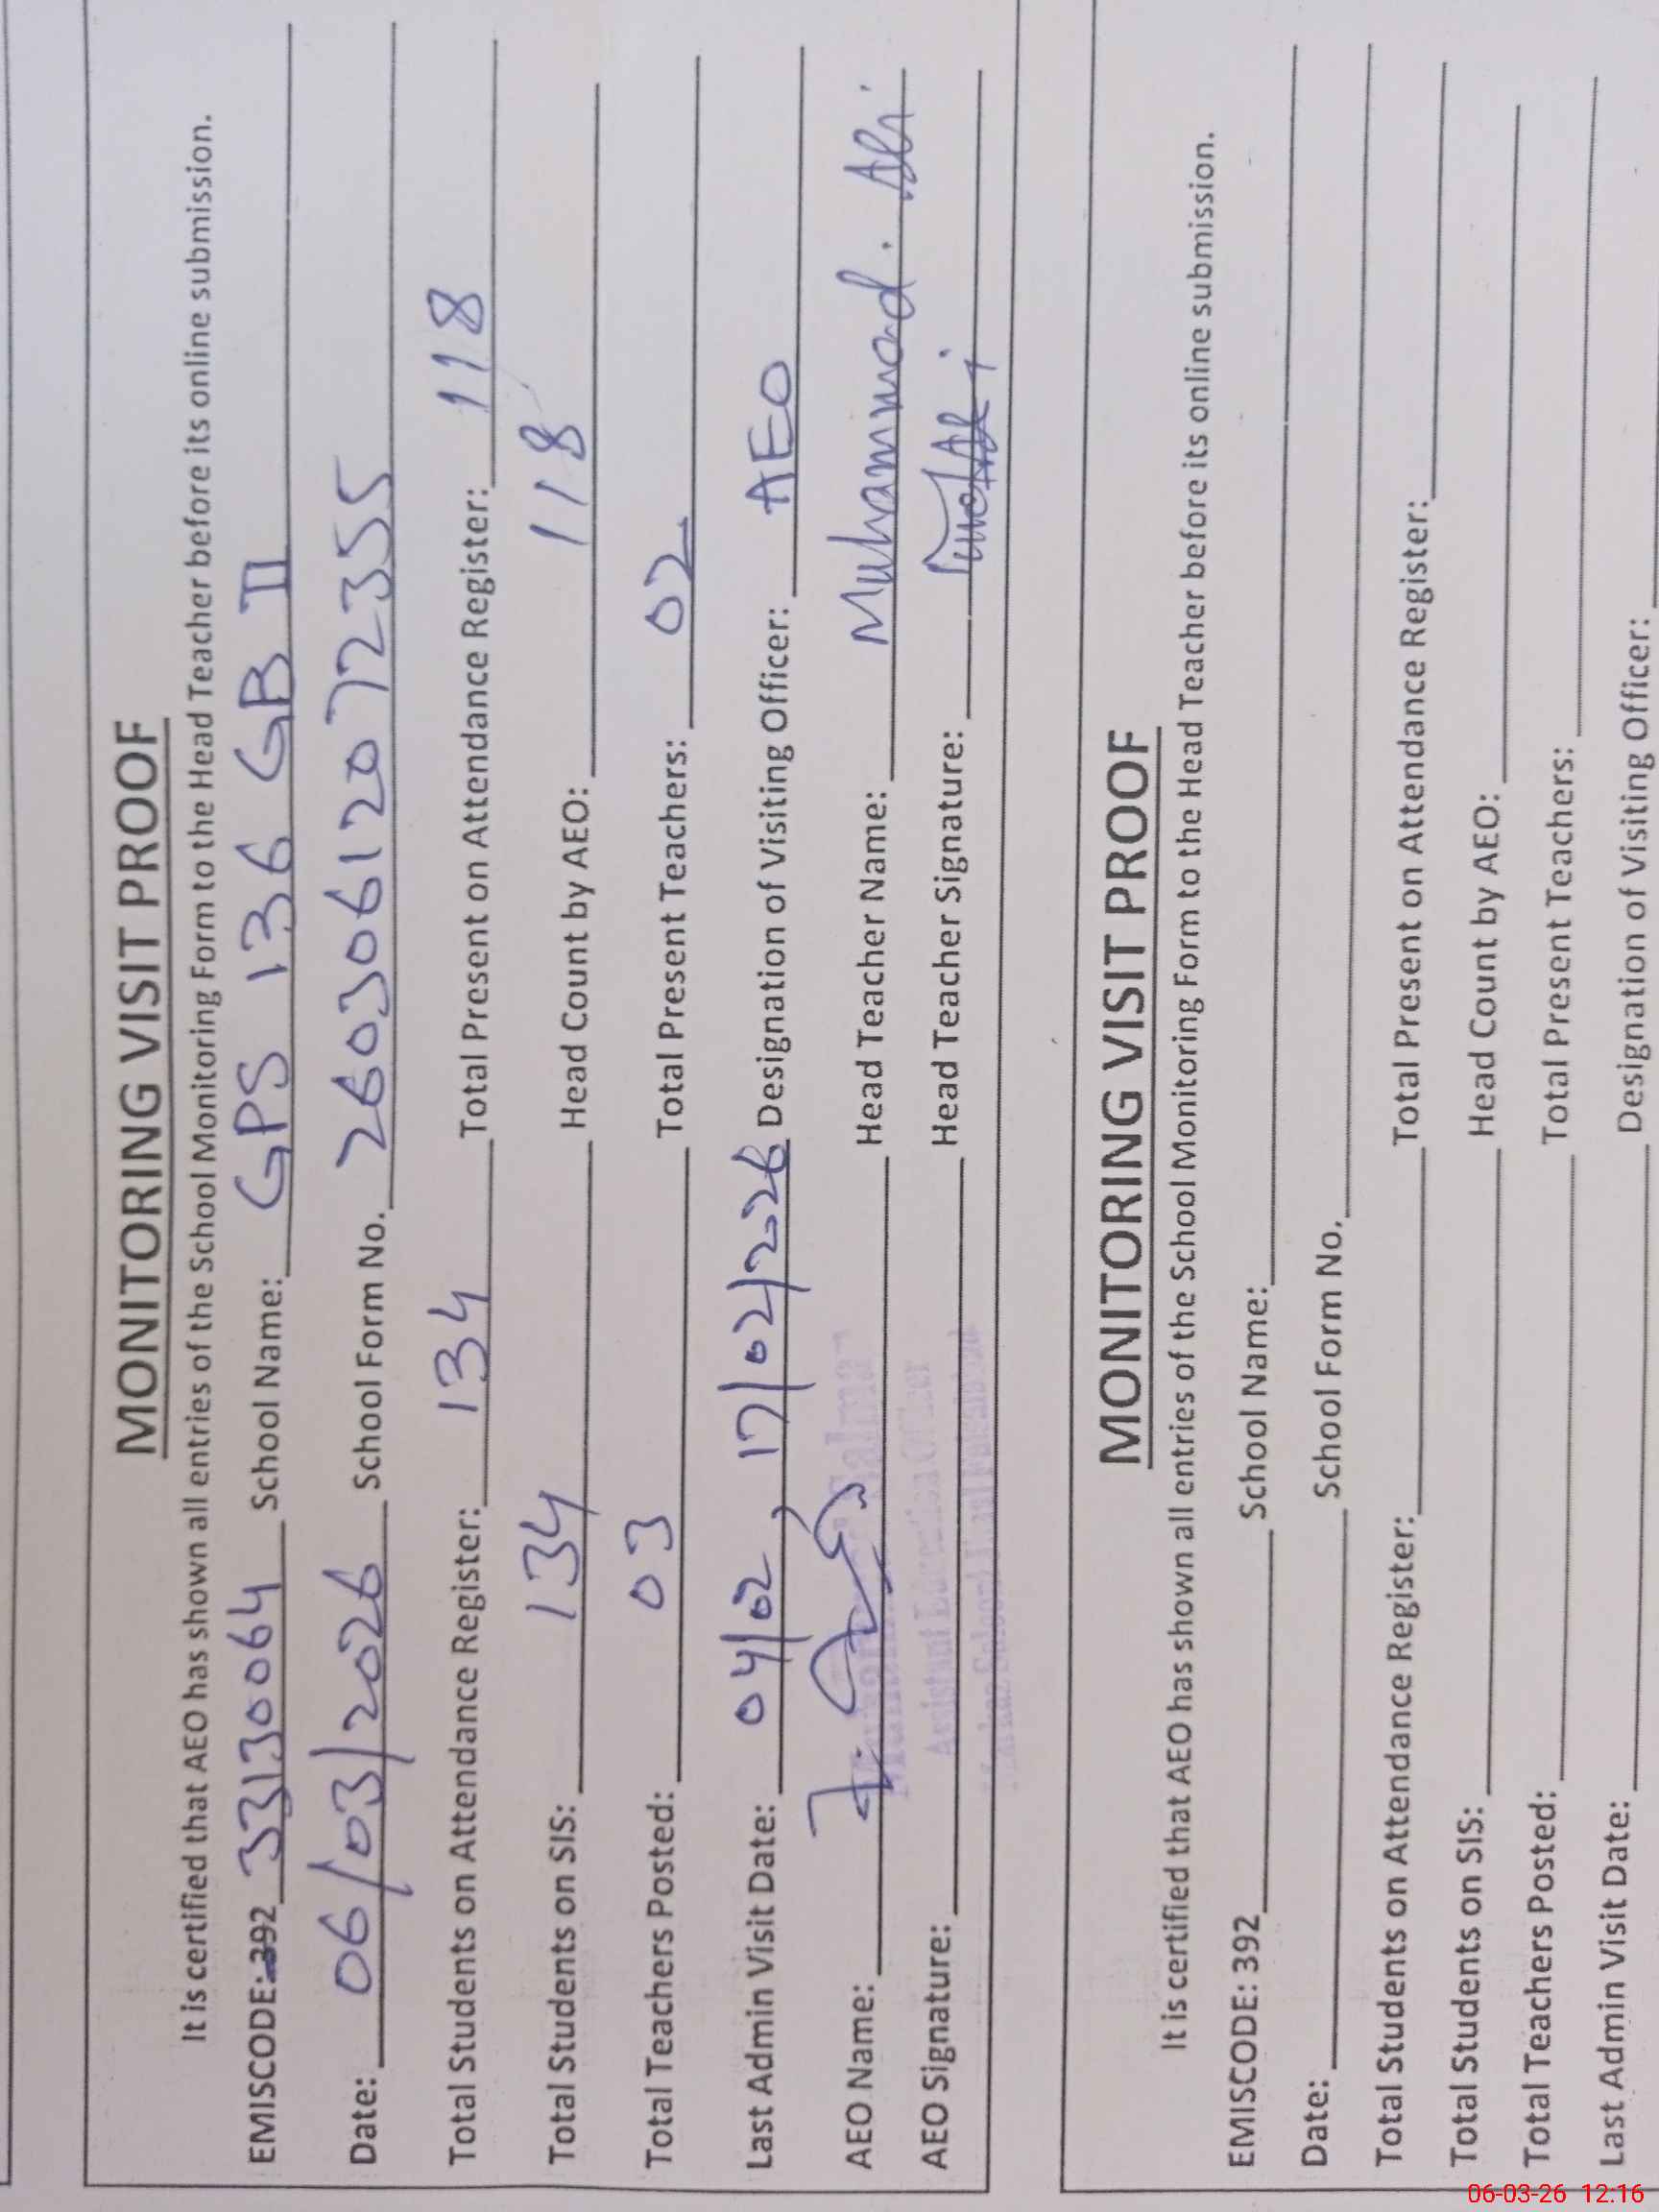 MONITORING VISIT PROOF
It is certified that AEO has shown all entries of the School Monitoring Form to the Head Teacher before its online submission.
EMISCODE: 392 33130064 School Name: GPS 136 GB II
Date: 06/03/2026 School Form No. 26030612072355
Total Students on Attendance Register: 134 Total Present on Attendance Register: 118
Total Students on SIS: 134 Head Count by AEO: 118
Total Teachers Posted: 03 Total Present Teachers: 02
Last Admin Visit Date: 04/02, 17/02/2026 Designation of Visiting Officer: AEO
AEO Name: Head Teacher Name: Muhammad. Ali
Assistant Education Officer
AEO Signature: Head Teacher Signature:
MONITORING VISIT PROOF
It is certified that AEO has shown all entries of the School Monitoring Form to the Head Teacher before its online submission.
EMISCODE: 392 School Name:
Date: School Form No.
Total Students on Attendance Register: Total Present on Attendance Register:
Total Students on SIS: Head Count by AEO:
Total Teachers Posted: Total Present Teachers:
Last Admin Visit Date: Designation of Visiting Officer:
06-03-26 12:16